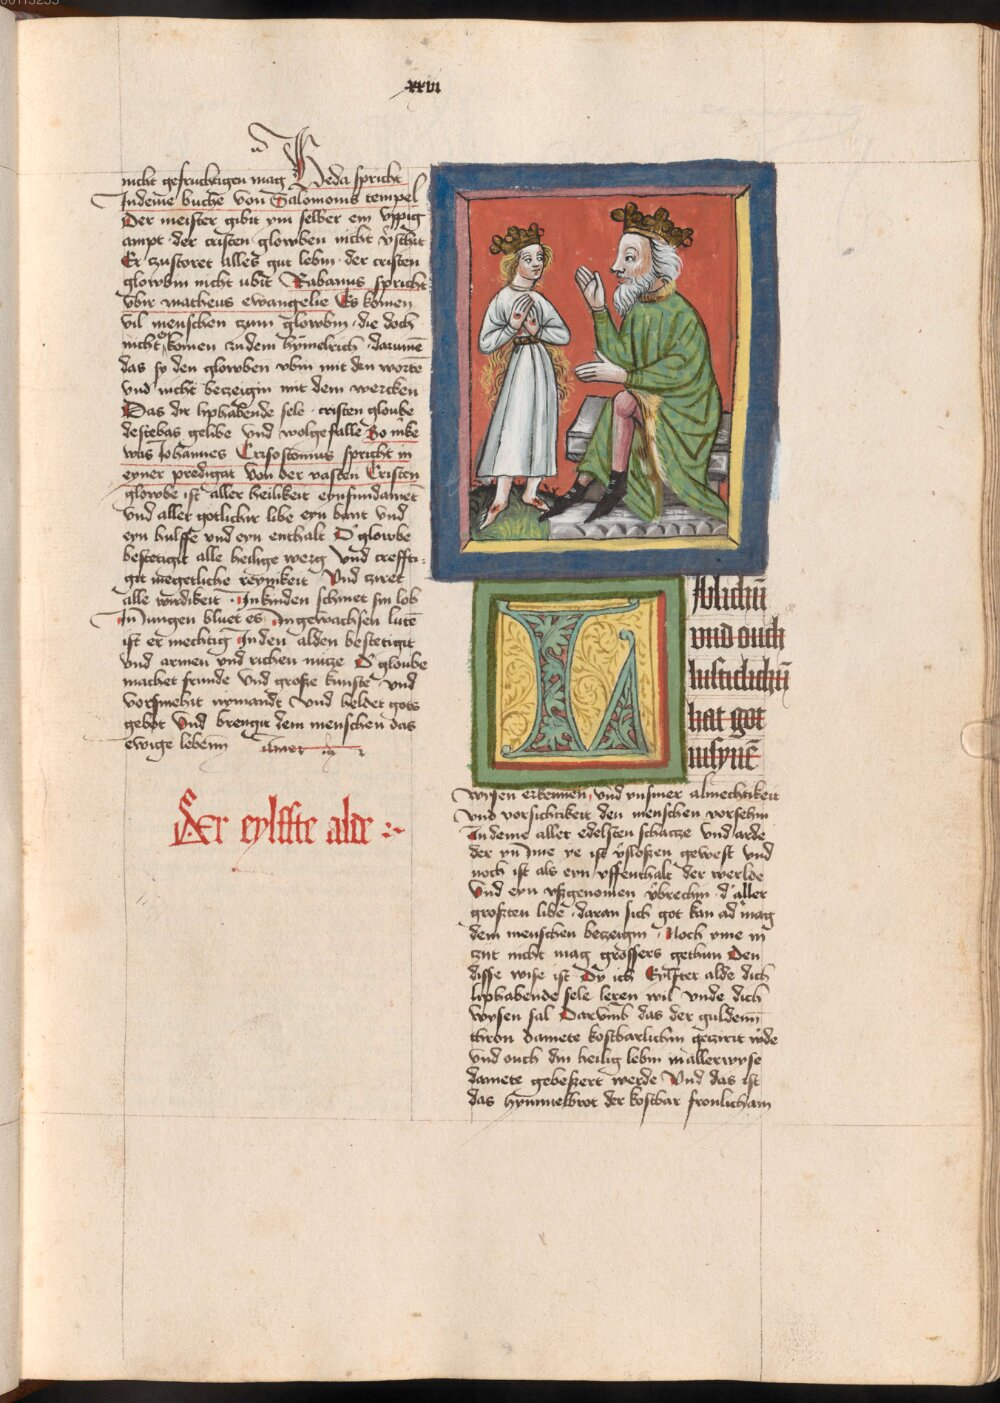 xxvi
nicht gefruchtigen mag Beda spricht
Indeme buche von Salomonis tempel
Der meister gibit ym selber eyn vppig
ampt der cristen glowben nicht
Er zustoret alles gut lebin der cristen
glowbin nicht ubit Rabanus spricht
vbir matheus ewangelie Es komen
vil menschen czum glowbin die doch
nicht komen zu dem hymelrich darume
das sy den glowben vbin mit den worte
vnd nicht beczeigin mit dem wercken
Das dir liphabende sele cristen gloube
destebas gelibe vnd wolgefalle So mke
was Johannes Crisostomus spricht in
eyner predigat von der vasten Cristen
glowbe ist aller heilikeit eyn fundamet
vnd aller gotlichir libe eyn bant vnd
eyn hulffe vnd eyn enthalt D' glowbe
bestetigit alle heilige werg vnd creffti-
git megetliche reynikeit vnd ziret
alle wirdikeit In kinden schinet sin lob
In Jungen bluet es In gewachsen lute
ist er mechtig In den alden bestetigit
vnd armen vnd richen nutze D' gloube
machet frunde vnd große kunste vnd
vorsmehit nymandt vnd heldet gots
gebot vnd brengit dem menschen das
ewige lebenn
Der eylffte alde
L
iblichin
vnd ouch
lusticlichin
hat got
in syne
wysen erkennen vnd vnsiner almechtikeit
vnd vorsichtikeit den menschen vorsehin
In deme aller edelsten schacze vnd
der yn Ime ye ist v'sloßen gewest vnd
noch ist als eyn vffenthalt der werlde
vnd eyn vßgenomen d' aller
großten libe daran sich got kan ad' mag
dem menschen beczeigin Noch yme in
czit nicht mag grossers gethun Den
disse wise ist Dy ich Eylfter alde dich
liphabende sele leren wil vnde dich
wysen sal Darvmb das der guldenn
thron damete kostbarlichin geczirit w'de
vnd ouch din heilig lebin in aller wyse
damete gebeßert werde Vnd das ist
das hymmelbrot der kostbar fronlicham